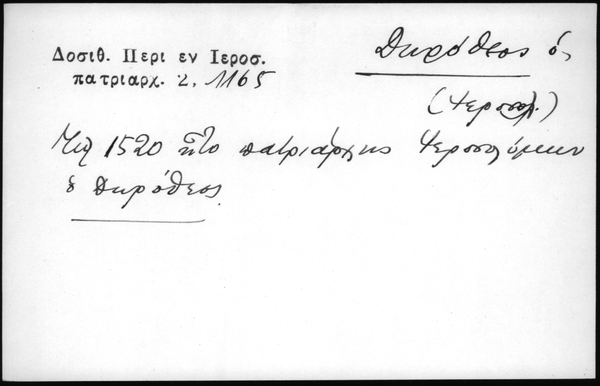 Δοσιθ. Περι εν Ιεροσ.
πατριαρχ. 2, 1165
Δωρόθεος ὁ,
(Ἱεροσολ.)
1520 ἦτο πατριάρχης Ἱεροσολύμων
ὁ Δωρόθεος.